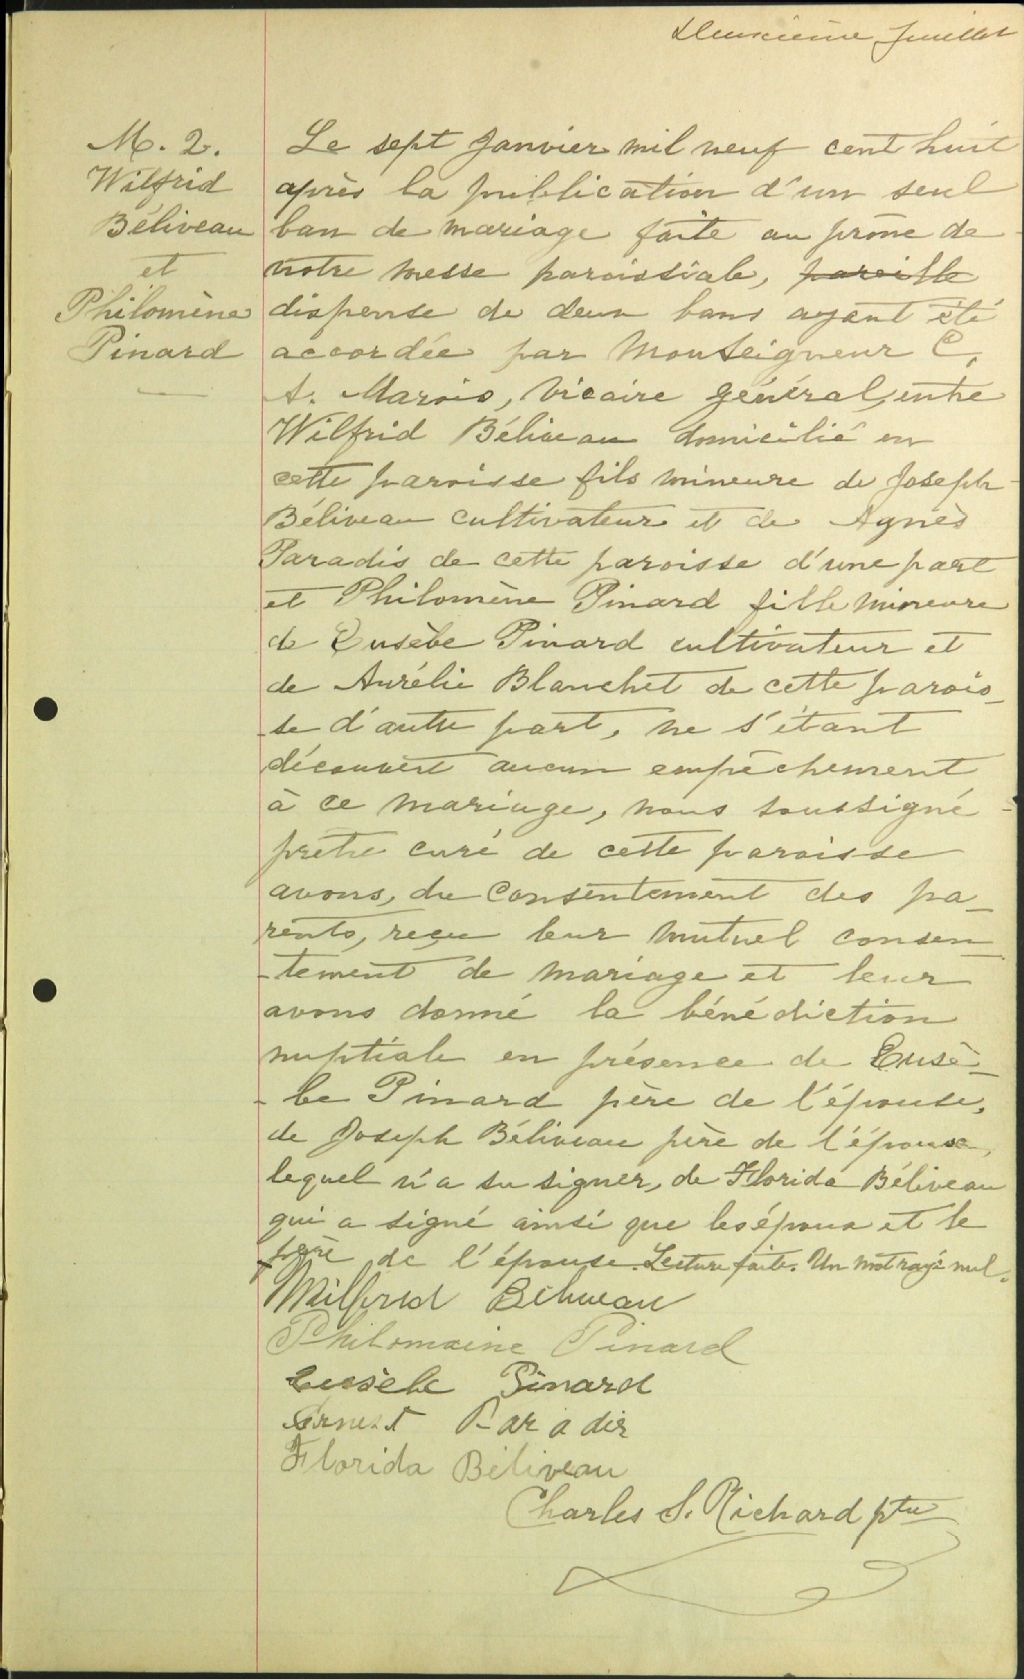 Deuxième feuillet
M. 2.
Wilfrid
Béliveau
et
Philomène
Pinard
Le sept Janvier mil neuf cent huit
après la publication d'un seul
ban de mariage faite au prône de
notre messe paroissiale, pareille
dispense de deux bans ayant été
accordée par Monseigneur C.
A. Marois, Vicaire général, entre
Wilfrid Béliveau domicilié en
cette paroisse fils mineure de Joseph
Béliveau cultivateur et de Agnès
Paradis de cette paroisse d'une part
et Philomène Pinard fille mineure
de Eusèbe Pinard cultivateur et
de Aurélie Blanchet de cette parois_
_se d'autre part, ne s'étant
découvert aucun empêchement
à ce mariage, nous soussigné
prêtre curé de cette paroisse
avons, du consentement des pa_
rents, reçu leur mutuel consen_
_tement de mariage et leur
avons donné la bénédiction
nuptiale en présence de Eusè_
_be Pinard père de l'épouse,
de Joseph Béliveau père de l'époux,
lequel n'a su signer, de Florida Béliveau
qui a signé ainsi que les époux et le
père de l'épouse. Lecture faite. Un mot rayé nul.
Wilfrid Béliveau
Philomaine Pinard
Eusèbe Pinard
Ernest Paradis
Florida Béliveau
Charles S. Richard ptre